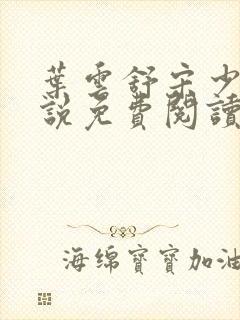 葉雲舒宋少
說免費閱讀
海绵寶寶加油